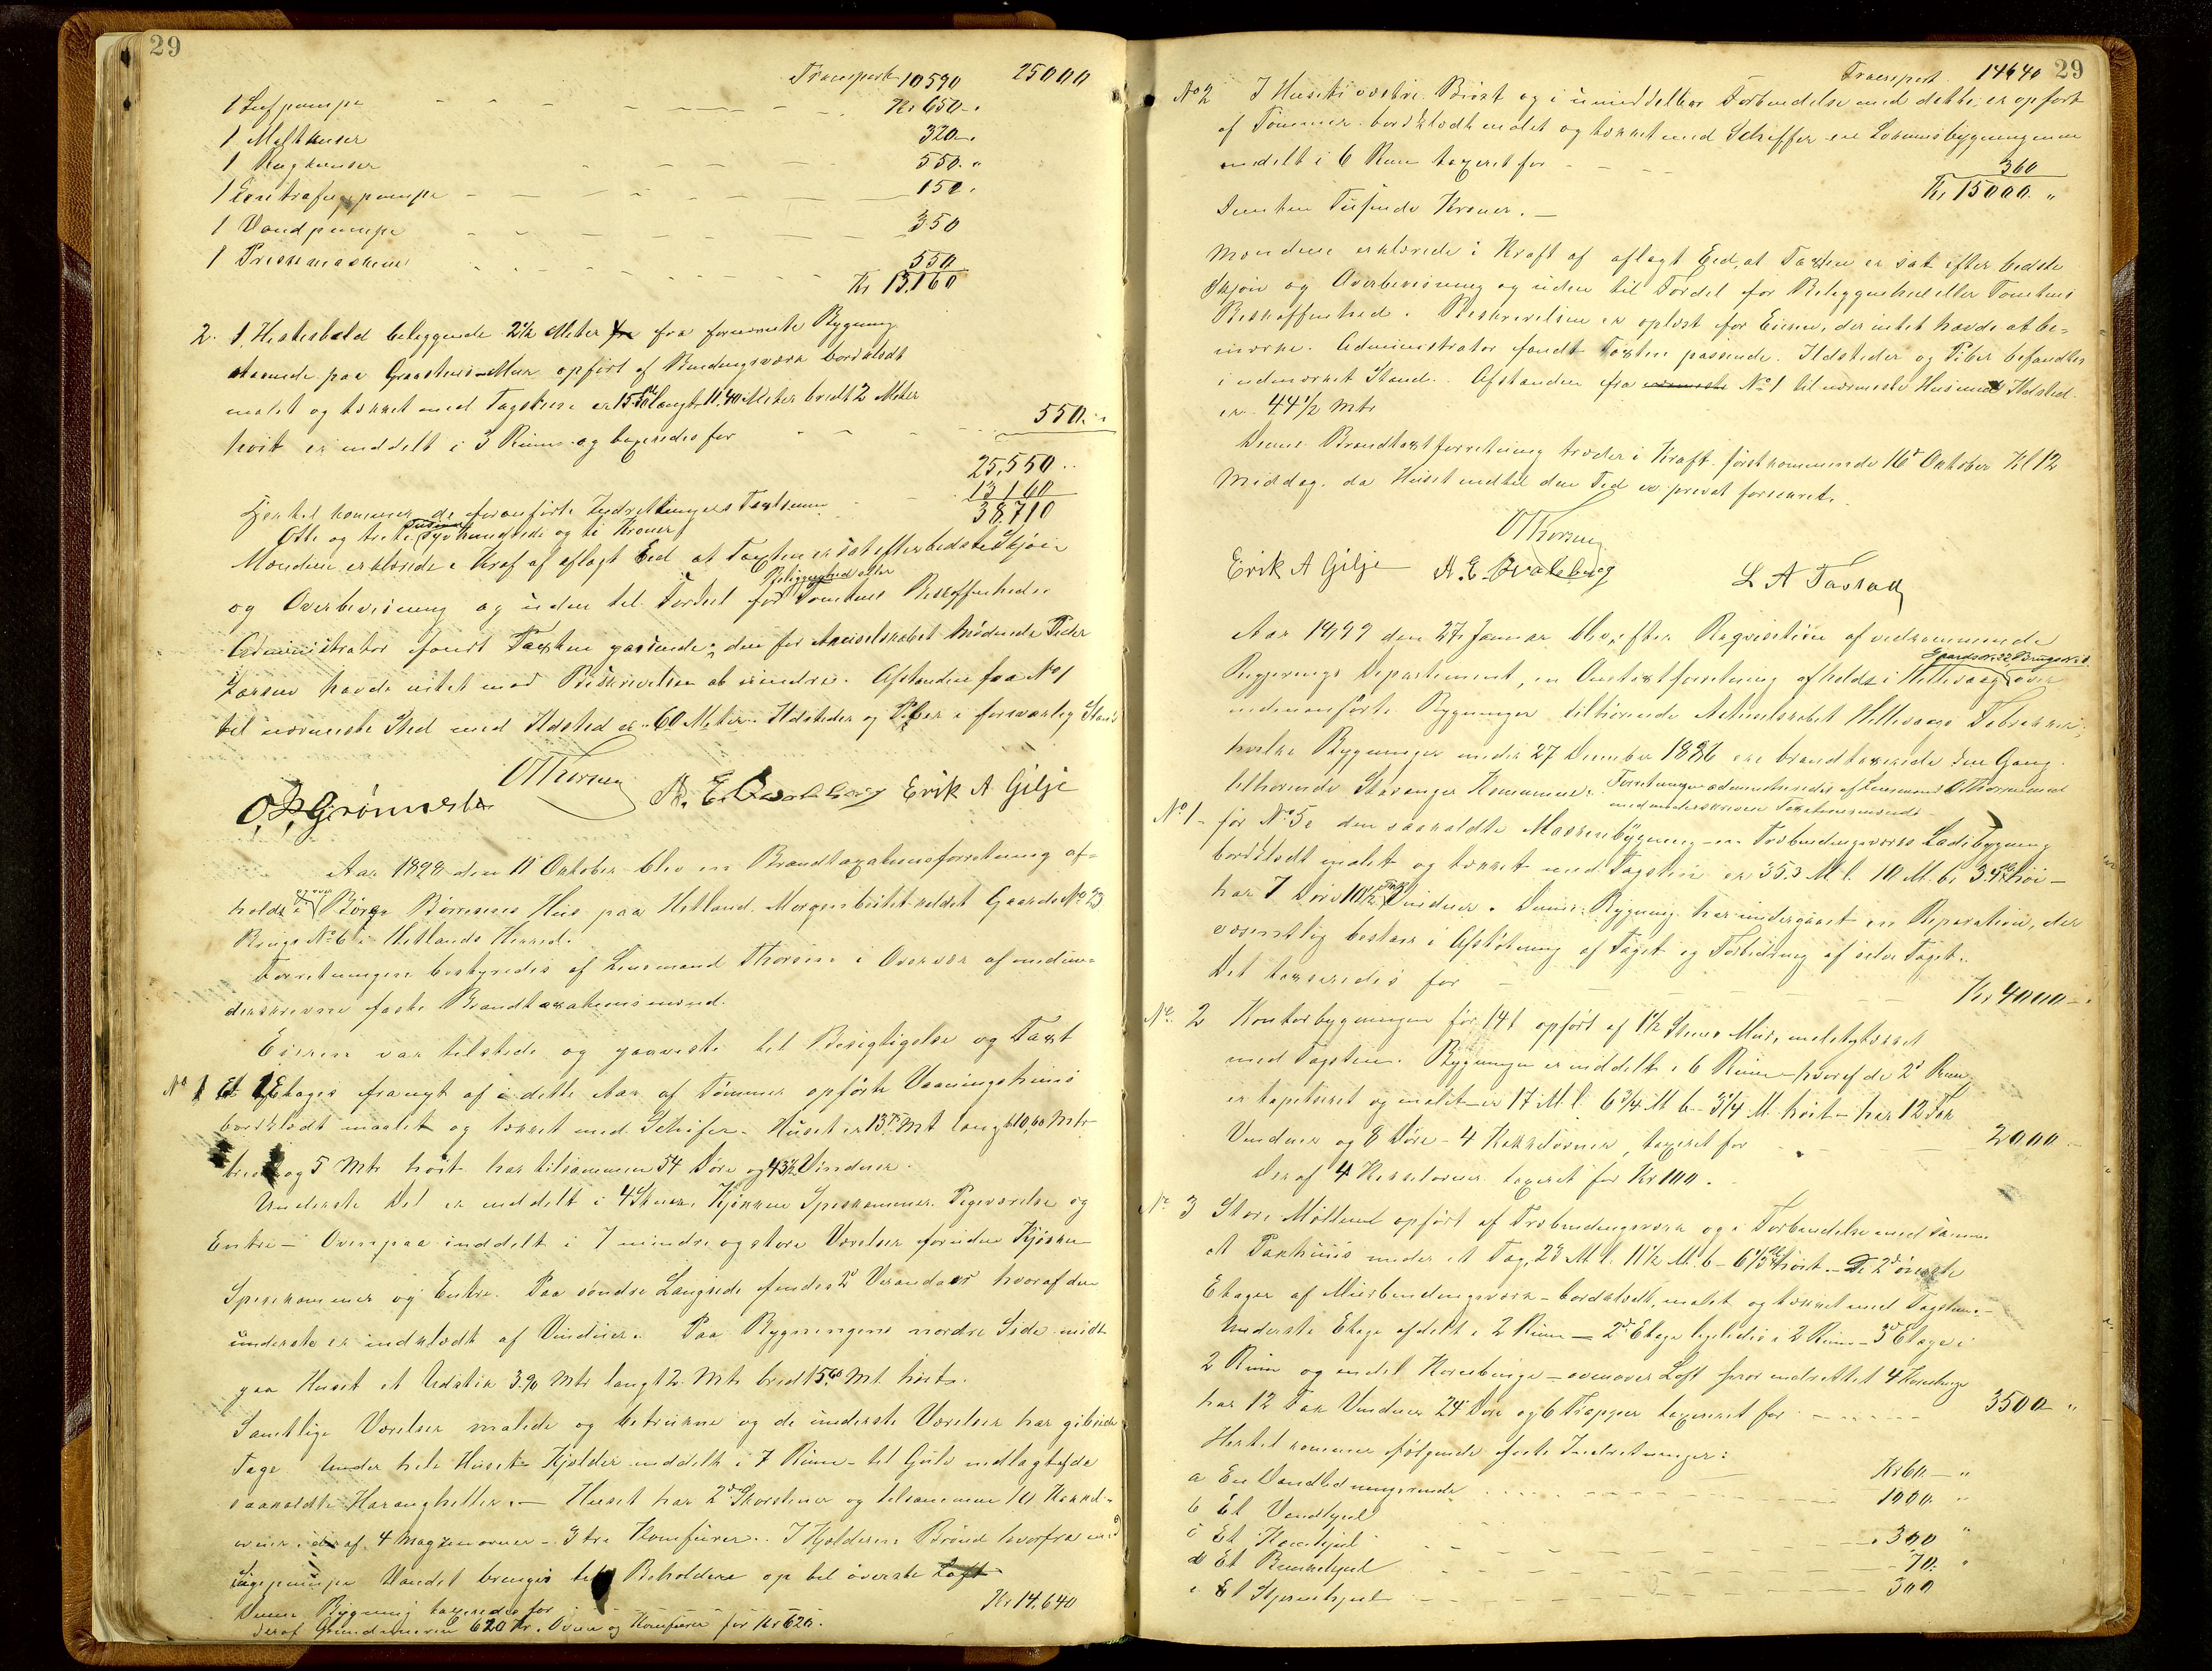 29
Transport 10590 25000
1 Luftpumpe Kr 650 "
1 Malthuser 320 "
1 Rughuser 550 "
1 Centrafugpumpe 150 "
1 Vandpumpe 350
1 Pressemaskine 550
Kr 13,160
2. 1 Hestestald beliggende 2½ Meter fra fornævnte Bygning
staaende paa Graastens-Mur opført af Bindingsværk bordklædt
malet og tækket med Tagsten er langt 11,40 Meter bredt 2 Meter
høit er inddelt i 3 Rum og taxeredes for 550. "
25,550 "
13160
Hertil kommer de foranførte Indretningers Taxtsum 38,710
Otte og treti Tusinde syv hundrede og ti Kroner
Mændene erklærede i Kraf af aflagt Eed at Taxten er sat efter bedste Skjøn
Beliggenhed eller
og Overbevisning og uden til Fordeel for Tomtens Beskaffenhed.
Administrator fandt Taxten passende; den for Aktieselskabet mødende Peder
Larsen havde intet mod Beskrivelsen at erindre. Afstanden fra No 1
til nærmeste Sted med Ildsted er 60 Meter. Ildsteder og Piber i forsvarlig Stand
OThorsen
A. E. Qvaleberg Erik A Gilje
Aar 1898 den 11 Oktober blev en Brandtaxationsforretning af=
og over
holdt i Børge Børresens Hus paa Hetland, Morgenbeitet kaldet Gaards No 23
Brugs No 6 i Hetlands Herred.
Forretningen bestyredes af Lensmand Thorsen i Overvær af neden=
derskrevne faste Brandtaxationsmænd.
Eieren var tilstede og paaviste til Besigtigelse og Taxt
No 1 Et 2 Etages fra nyt af i dette Aar af Tømmer opførte Vaaningshuus
bordklædt maalet og tækket med Schifer. Huset er 13,75 Mt langt 10,60 Mtr
bredt og 5 Mtr høit har tilsammen 54 Døre og 43½ Vinduer.
Underste Del er inddelt i 4 Stuer, Kjøkken Spiskammer Pigeværelse og
Entre — Ovenpaa inddelt i 7 mindre og større Værelser foruden Kjøkken
Spisekammer og Entre. Paa søndre Langside findes 2de Verandaer hvoraf den
underste er indklædt af Vinduer. Paa Bygningens nordre Side midt
paa Huset et Udstik 3,90 Mtr langt 2 Mtr bredt 5,60 Mt høit.
Samtlige Værelser malede og betrukne og de underste Værelser har gibsede
Tage. Under hele Huset Kjælder inddelt i 7 Rum - til Gulv nedlagt af de
saakaldte Haraugheller. — Huset har 2de Skorstene og tilsammen 10 Kakkel-
ovner, deraf 4 Magasinovner - 3 tre Komfurer. I Kjælderen Brønd hvorfra med
Sugepumpe Vandet bringes til Beholdere op til øverste Loft
Denne Bygning taxeredes for Kr 14,640
Deraf Grundmuren 620 Kr. Ovne og Komfurer for Kr 620.
Transport 14640 29
No 2 I Husets vestre Brøst og i umiddelbar Forbindelse med dette, er opført
af Tømmer bordklædt malet og tækket med Schiffer en Lokumsbygning
inddelt i 6 Rum taxeret for 360
Kr 15000 "
Femten Tusinde Kroner. —
Mændene erklærede i Kraft af aflagt Eed, at Taxten er sat efter bedste
Skjøn og Overbevisning og uden til Fordel for Beliggenhed eller Tomtens
Beskaffenhed. Beskrivelsen er oplæst for Eieren, der intet havde at be=
mærke. Administrator fandt Taxten passende. Ildsteder og Piber befandtes
i udmærket Stand. Afstanden fra No 1 til nærmeste Hus med Ildsted
er 44½ Mtr
Denne Brandtaxtforretning træder i Kraft førstkommende 16de Oktober Kl 12
Middag, da Huset indtil den Tid er privat forsikret.
OThorsen
Erik A Gilje A. E. Qvaleberg L A Tastad
Aar 1899 den 27de Januar blev, efter Reqvisition af vedkommende
Gaards No 22, Brugs No
Regjerings Departement, en Omtaxtforretning afholdt i Hillevaag over
nedenanførte Bygninger tilhørende Aktieselskabet Hillevaags Fabrikker,
hvilke Bygninger under 27 December 1886 ere brandtaxerede den Gang
tilhørende Stavanger Kommune. Forretningen administreredes af Lensmand OThorsen med
nedunderskrevne Taxationsmænd
No 1 - før No 5. den saakaldte Maskinbygning — en Træbindingsværks Ladebygning
bordklædt malet og tækket med Tagsten er 35.3 M. l. 10 M. b. høi —
har 7 Døre 10½ Fag Vinduer. Denne Bygning har undergaaet en Reparation, der
væsentlig bestaar i Afstivning af Taget og Forbedring af selve Taget.
Det taxeredes for Kr 4000 — "
No 2 Kontorbygningen før 141 opført af 1½ Stens Mur, malet og tækket
med Tagsten. Bygningen er inddelt i 6 Rum — hvoraf de 2de Rum
er tapetseret og malet — er 17 M. l. 6¾ M b. 3¼ M. høit — har 12 Fag
Vinduer og 8 Døre - 4 Kakkelovner, taxeret for 2000 —
Deraf 4 Kakkelovner taxeret for Kr 100.
No 3 Store Mølle opført af Træbindingsværk og i Forbindelse med samme
et Pakhuus under et Tag, 23 M. l. 11½ M. b - høit. De 2de øverste
Etager af Muurbindingsværk - bordklædt, malet og tækket med Tagsten.
Underste Etage afdelt i 2 Rum — 2den Etage ligeledes i 2 Rum - 3de Etage i
2 Rum og endel Kornbinge — ovenover Loft hvor indrettet 4 Kornbinge
har 12 Fag Vinduer 24 Døre og 6 Trapper taxeret for 3500 — "
Hertil kommer følgende faste Indretninger:
a En Vandledningsrende Kr 60 — "
b Et Vandhjul 1000 "
c Et Kamhjul 300 "
d Et Bunkehjul 70. "
e Et Stjernehjul 300